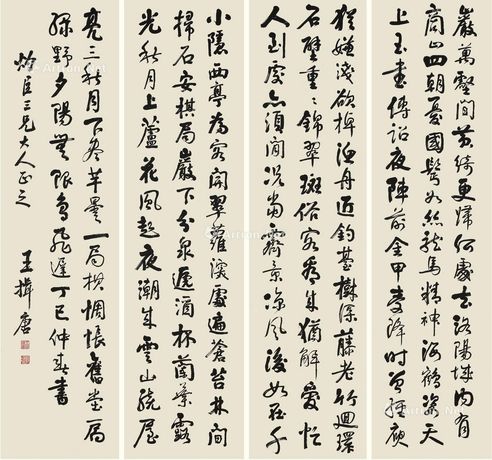 巖萬壑間黃綺更歸何處去洛陽城內有
商山四朝憂國鬢如絲龍馬精神海鶴姿天
上玉書傳詔夜陣前金甲受降時曾經庾
猶嫌淺欲棹漁舟近釣臺樹深藤老竹迴環
石壁重重錦翠斑俗客看來猶解愛忙
人到處亦須閒況當霽景涼風後如在千
小隱西亭為客開翠蘿深處遍蒼苔林間
掃石安棋局巖下分泉遞酒杯蘭葉露
光秋月上蘆花風起夜潮來雲山繞屋
亮三秋月下盡羊曇一局棋惆悵舊堂扃
綠野夕陽無限鳥飛遲丁巳仲春書
臣三兄大人正之
王揖唐